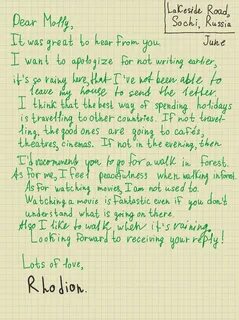 Lakeside Road,
Sochi, Russia
June
Dear Molly,
It was great to hear from you.
I want to apologize for not writing earlier,
it's so raining here, that I've not been able to
leave my house to send the letter.
I think that the best way of spending holidays
is travelling to other countries. If not travel-
ling, the good ones are going to cafés,
theatres, cinemas. If not in the evening, then
I'd recommend you to go for a walk in forest.
As for me, I feel peacefulness when walking in forest.
As for watching movies, I am not used to.
Watching a movie is fantastic even if you don't
understand what is going on there.
Also I like to walk when it's raining.
Looking forward to receiving your reply!
Lots of love,
Rhodion.